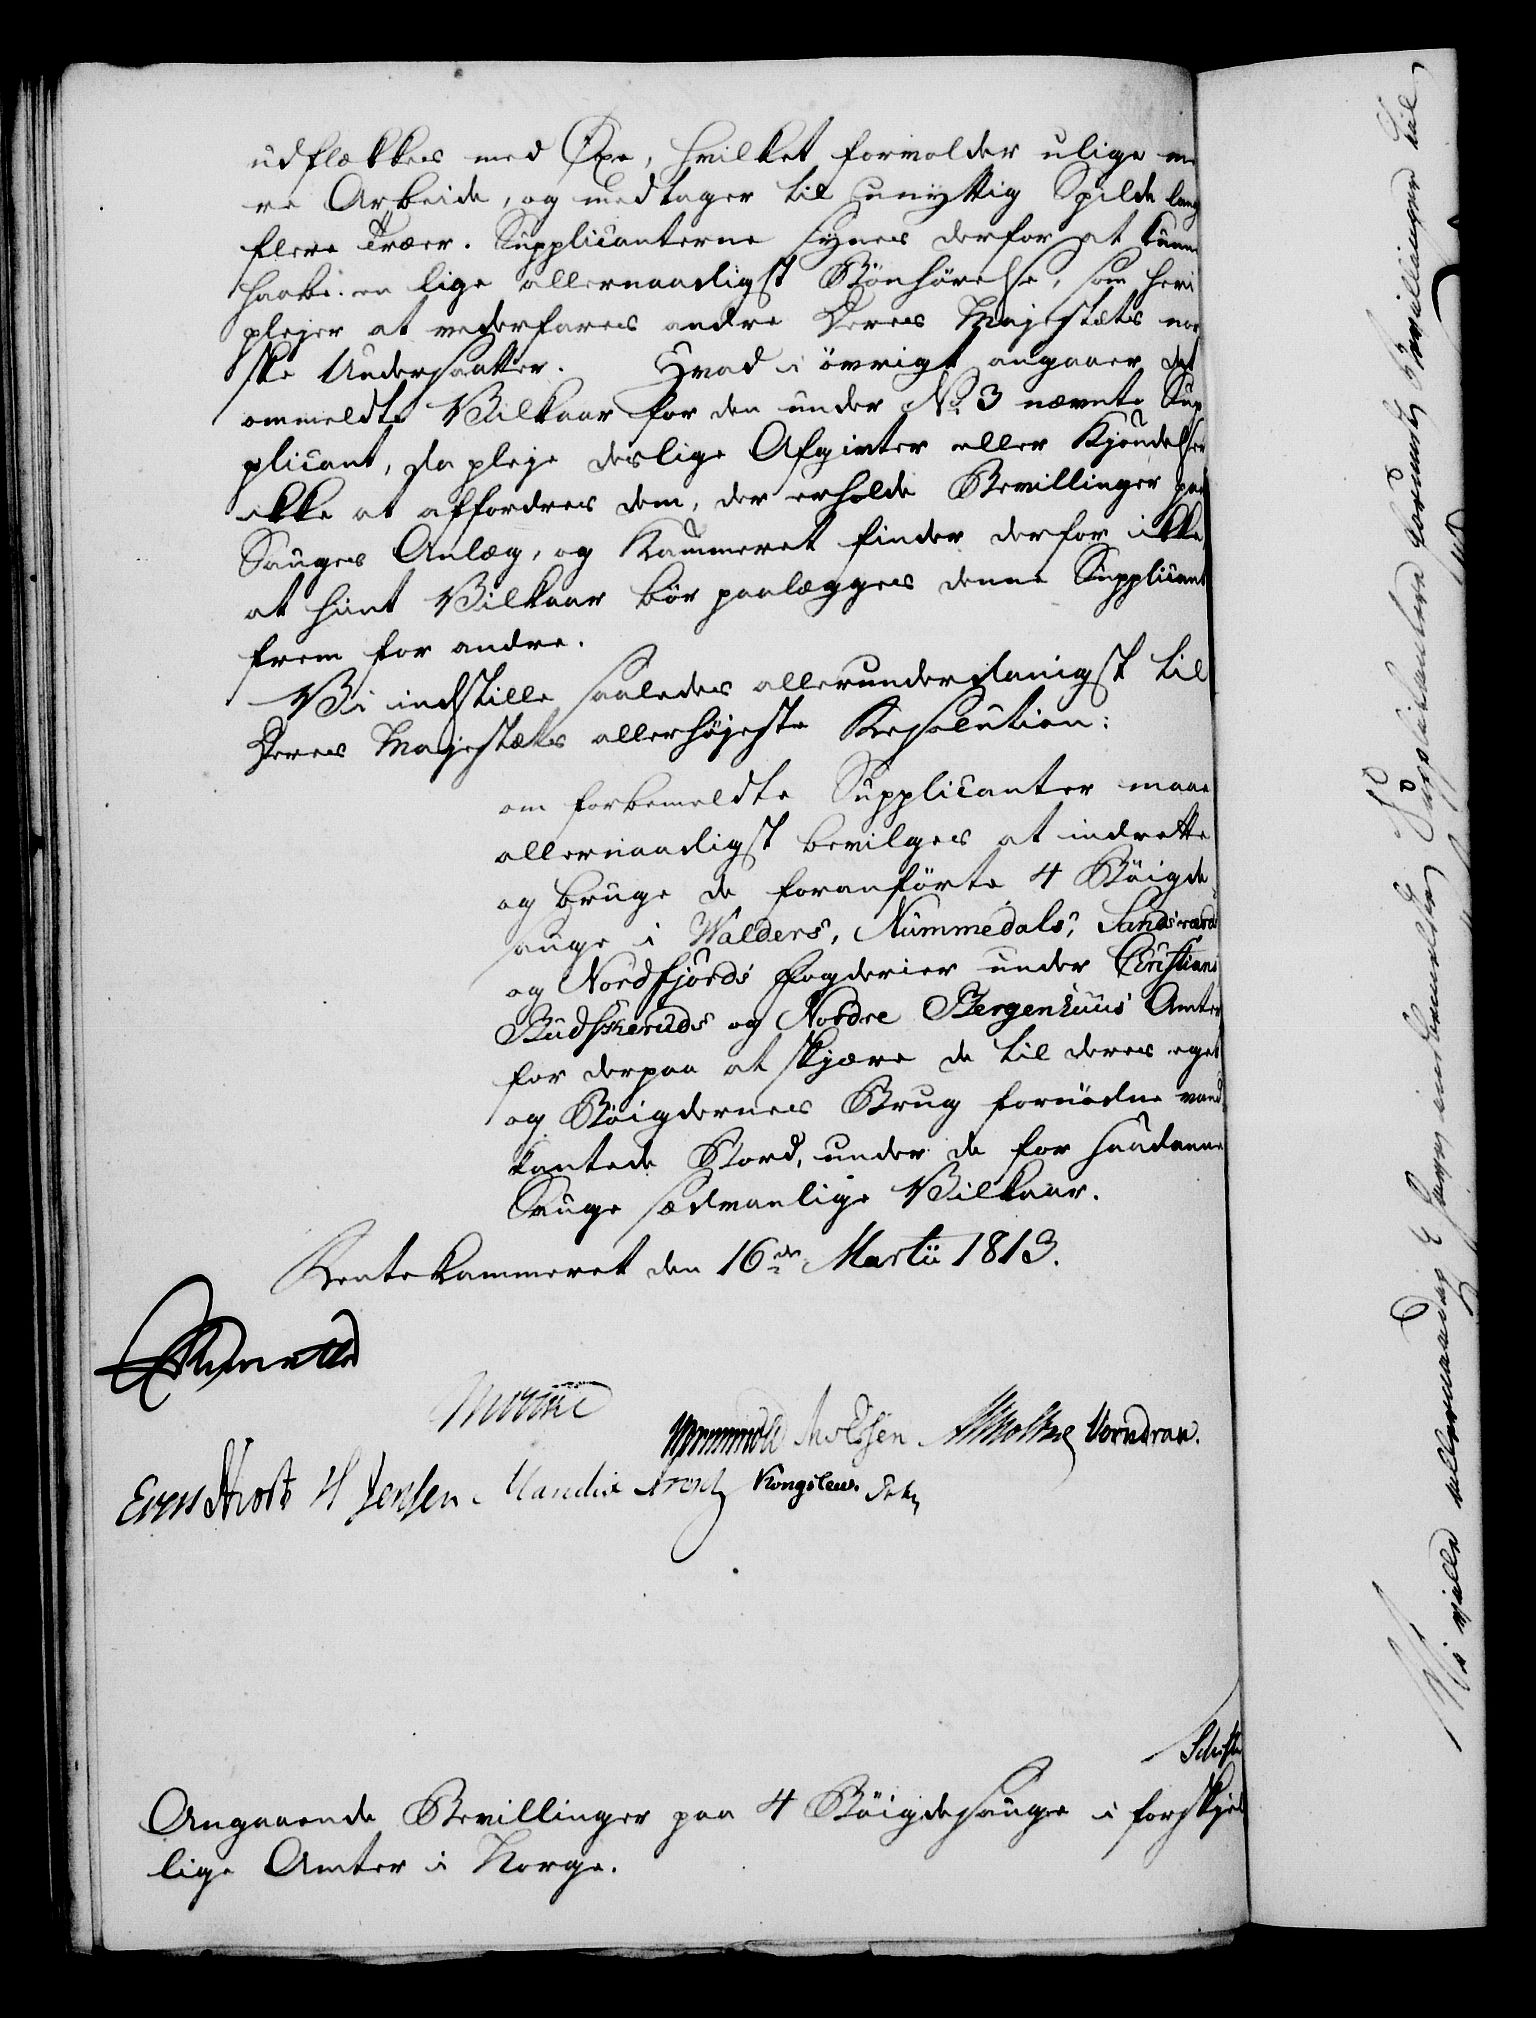 udflækkes med Øxe, hvilket forvolder ulige me
re Arbeide, og medtager til unyttig Spilde lang
flere Træer. Supplicanterne synes derfor at kunne
haabe en lige allernaadigst Bönhörelse, som heri
plejer at vederfares andre Deres Majestæts nor
ske Undersaatter. Hvad i övrigt angaaer det
ommeldte Vilkaar for den under No 3 nævnte Sup
plicant, da pleje deslige Afgivter eller Kjendelser
ikke at affordres dem, der erholde Bevillinger paa
Sauges Anlæg, og Kammeret finder derfor ikke
at hiint Vilkaar bör paalægges denne Supplicant
frem for andre.
Vi indstille saaledes allerunderdanigst til
Deres Majestæts allerhøjeste Resolution:
om forbemeldte Supplicanter maae
allernaadigst bevilges at indrette
og bruge de foranförte 4 Böigde
sauge i Walders, Nummedals, Sandsværds
og Nordfjords Fogderier under Christians
Budskeruds og Nordre Bergenhuus Amter
for derpaa at skjære de til deres eget
og Böigdernes Brug fornödne vand
kantede Bord, under de for saadanne
Sauge sædvanlige Vilkaar.
Rentekammeret den 16de Martii 1813.
Wormskiold Vorndran.
H Jensen Kongslew.
Angaaende Bevillinger paa 4 Böigdesauge i forskjel
lige Amter i Norge.
Vi ville allernaadigst have indbemeldte Supplikantere forundt Bevillinger til